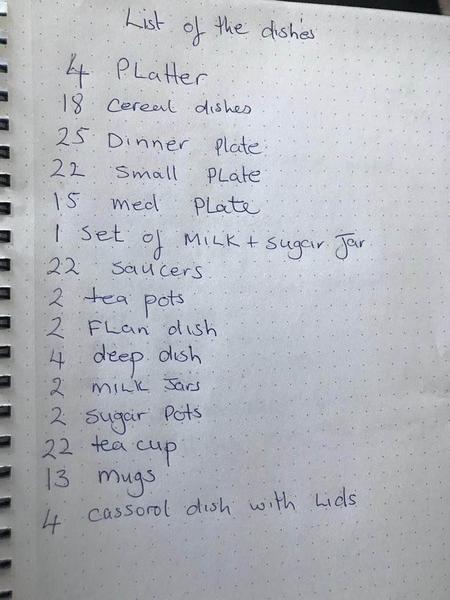 List of the dishes
4 Platter
18 cereal dishes
25 Dinner Plate
22 Small Plate
15 med Plate
1 Set of MILK + Sugar Jar
22 Saucers
2 tea pots
2 Flan dish
4 deep dish
2 MILK Jars
2 sugar Pots
22 tea cup
13 mugs
4 cassorol dish with Lids